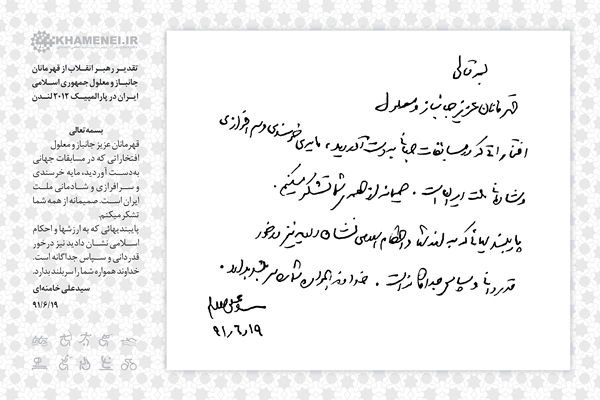 KHAMENEI.IR
تقدیر رهبر انقلاب از قهرمانان
جانباز و معلول جمهوری اسلامی
ایران در پارالمپیک ۲۰۱۲ لندن
بسمه‌تعالی
قهرمانان عزیز جانباز و معلول
افتخاراتی که در مسابقات جهانی
به‌دست آوردید، مایه خرسندی
و سرافرازی و شادمانی ملت
ایران است. صمیمانه از همه شما
تشکر میکنم.
پایبندیهائی که به ارزشها و احکام
اسلامی نشان دادید نیز درخور
قدردانی و سپاس جداگانه است.
خداوند همواره شما را سربلند بدارد.
سیدعلی خامنه‌ای
۹۱/۶/۱۹
بسمه تعالی
قهرمانان عزیز جانباز و معلول
افتخاراتی که در مسابقات جهانی به دست آوردید، مایه‌ی خرسندی و سرافرازی
و شادمانی ملت ایران است. صمیمانه از همه‌ی شما تشکر میکنم.
پایبندیهائی که به ارزشها و احکام اسلامی نشان دادید نیز در خور
قدردانی و سپاس جداگانه است. خداوند همواره شما را سربلند بدارد.
۹۱/۶/۱۹